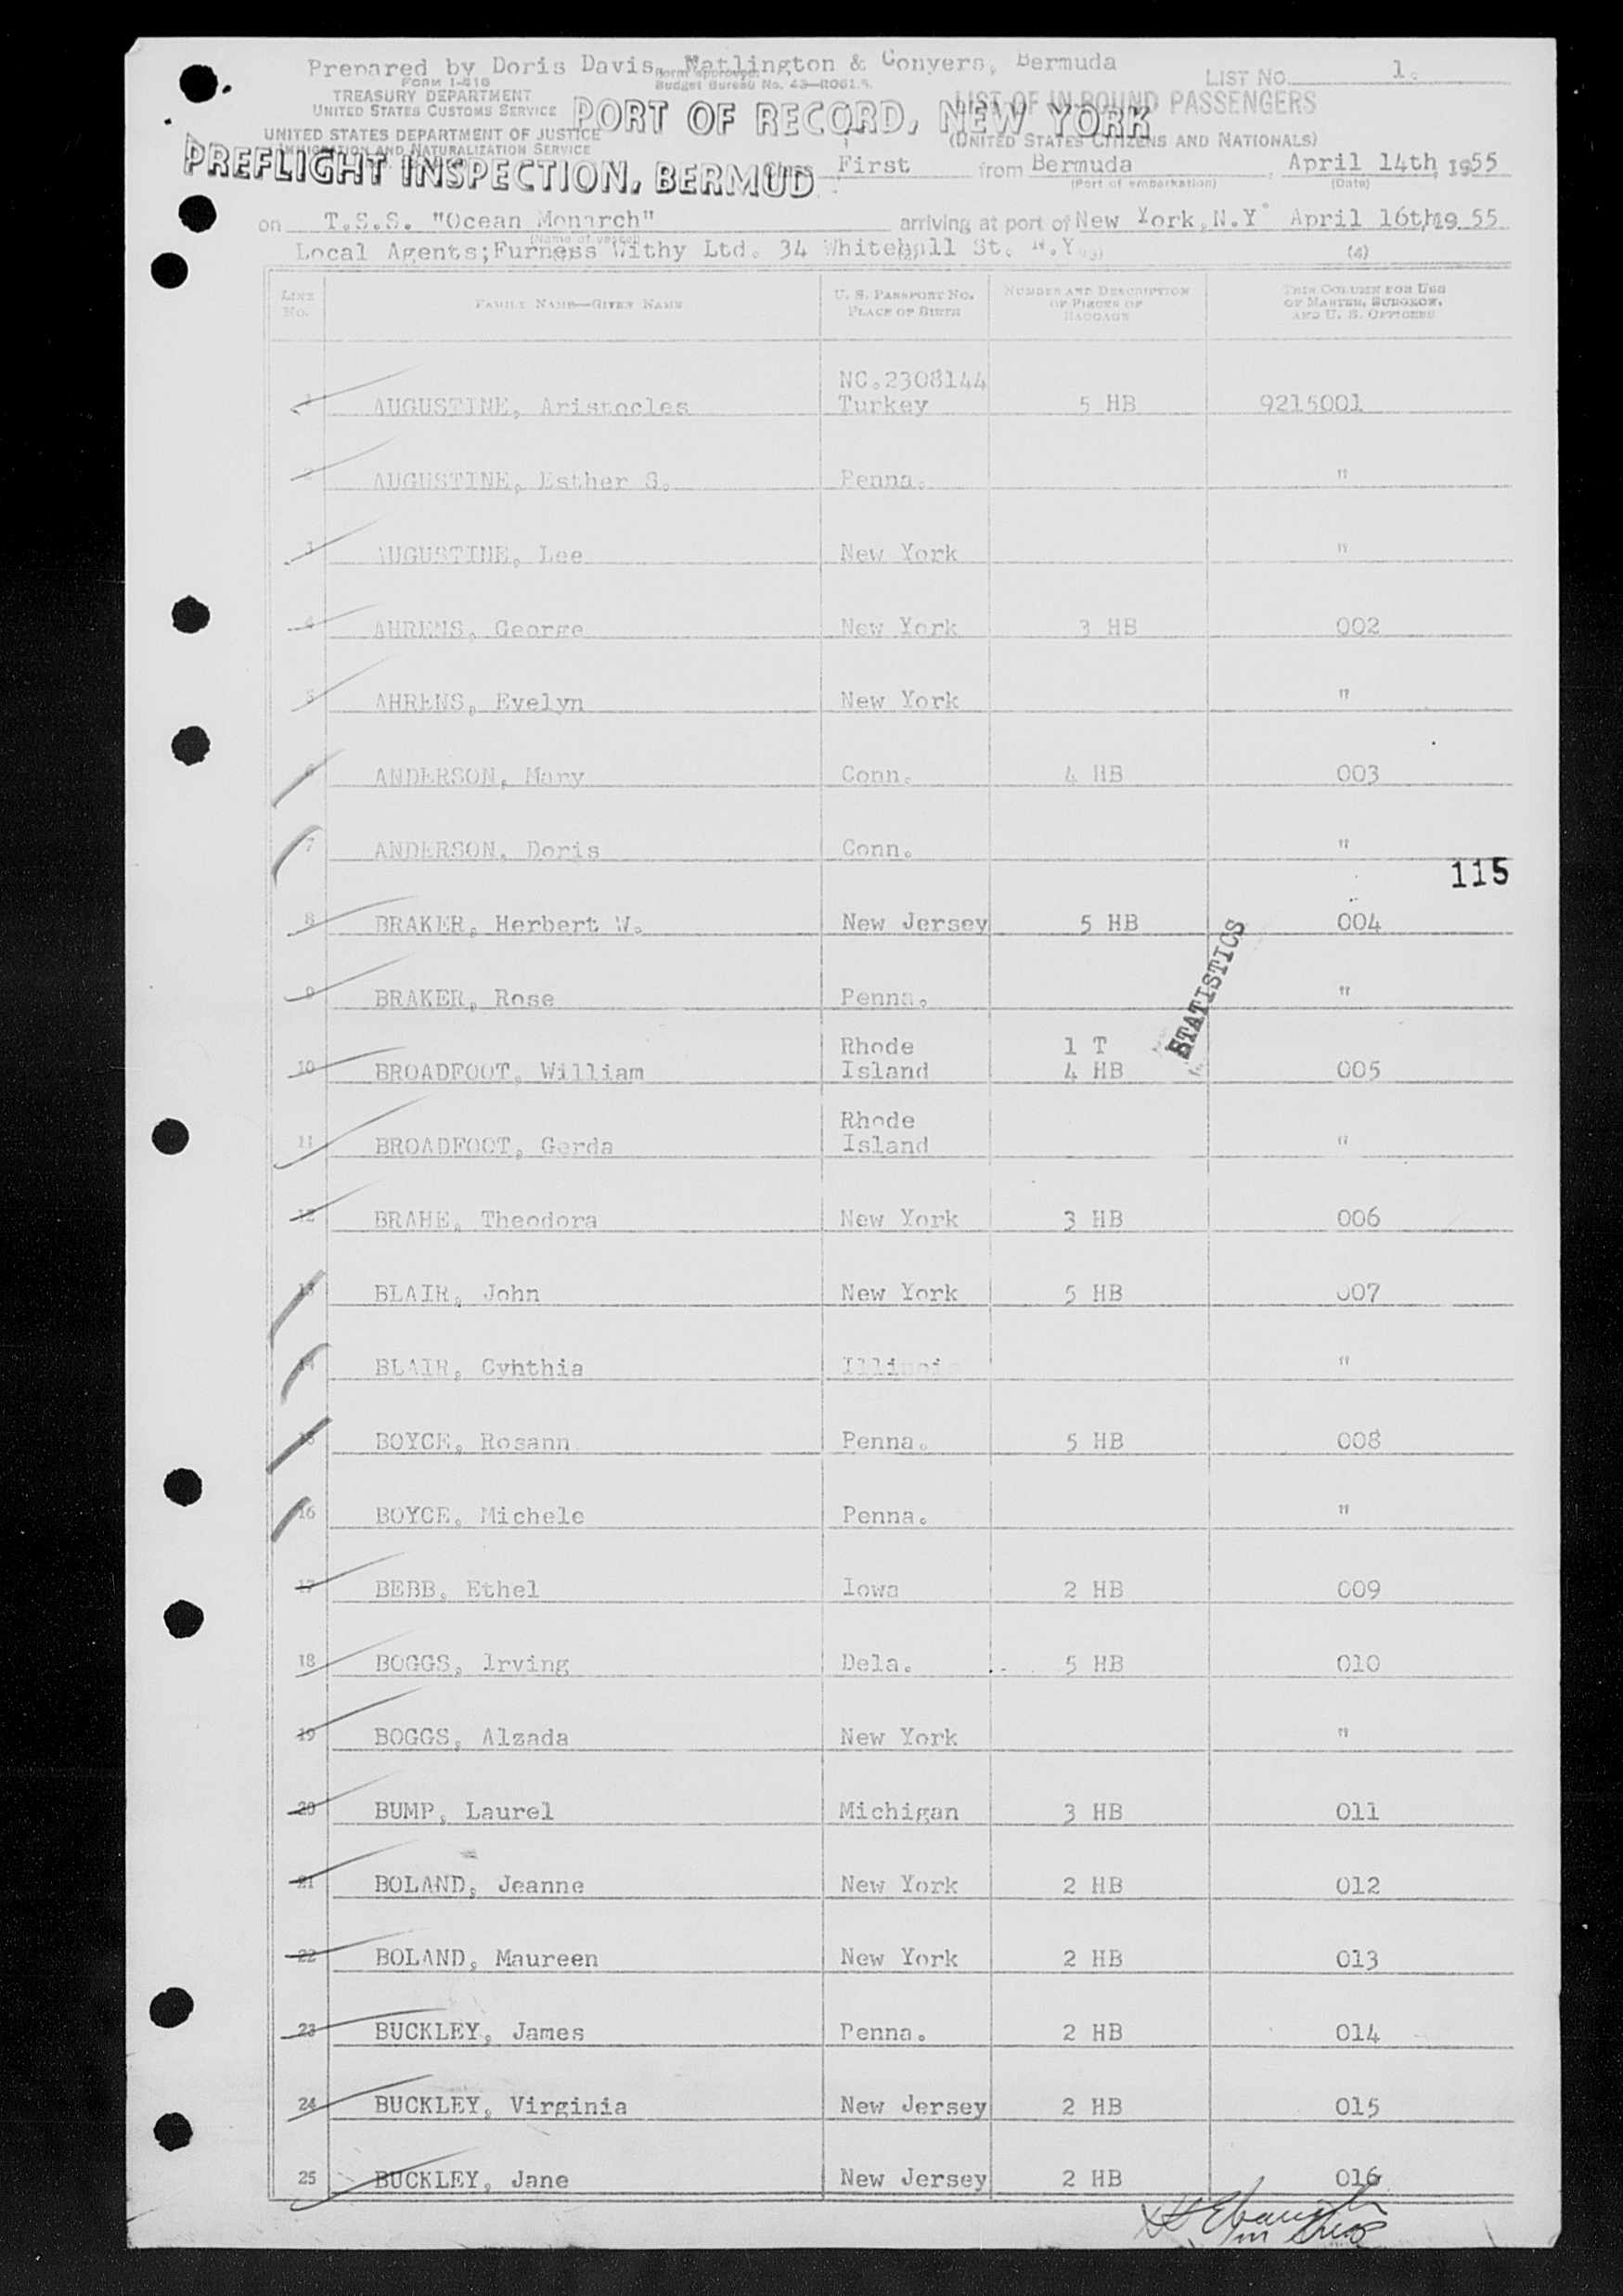 Prepared by Doris Davis, Watlington & Conyers, Bermuda
Form I-416
Form approved.
Budget Bureau No. 43-R061.5.
LIST No. 1.
TREASURY DEPARTMENT
UNITED STATES CUSTOMS SERVICE
PORT OF RECORD, NEW YORK
LIST OF IN-BOUND PASSENGERS
UNITED STATES DEPARTMENT OF JUSTICE
(UNITED STATES CITIZENS AND NATIONALS)
IMMIGRATION AND NATURALIZATION SERVICE
PREFLIGHT INSPECTION, BERMUD
Class First from Bermuda, April 14th, 1955
(Port of embarkation) (Date)
on T.S.S. "Ocean Monarch" arriving at port of New York, N.Y. April 16th, 1955
(Name of vessel)
Local Agents; Furness Withy Ltd. 34 Whitehall St. N.Y.
(3) (4)
LINE No. FAMILY NAME—GIVEN NAME U. S. PASSPORT NO. PLACE OF BIRTH NUMBER AND DESCRIPTION OF PIECES OF BAGGAGE THIS COLUMN FOR USE OF MASTER, SURGEON, AND U. S. OFFICERS
NC.2308144
1 AUGUSTINE, Aristocles Turkey 5 HB 9215001
2 AUGUSTINE, Esther S. Penna. "
3 AUGUSTINE, Lee New York "
4 AHRENS, George New York 3 HB 002
5 AHRENS, Evelyn New York "
6 ANDERSON, Mary Conn. 4 HB 003
7 ANDERSON, Doris Conn. "
115
8 BRAKER, Herbert W. New Jersey 5 HB 004
STATISTICS
9 BRAKER, Rose Penna. "
Rhode 1 T
10 BROADFOOT, William Island 4 HB 005
Rhode
11 BROADFOOT, Gerda Island "
12 BRAHE, Theodora New York 3 HB 006
13 BLAIR, John New York 5 HB 007
14 BLAIR, Cyhthia Illinois "
15 BOYCE, Rosann Penna. 5 HB 008
16 BOYCE, Michele Penna. "
17 BEBB, Ethel Iowa 2 HB 009
18 BOGGS, Irving Dela. 5 HB 010
19 BOGGS, Alzada New York "
20 BUMP, Laurel Michigan 3 HB 011
21 BOLAND, Jeanne New York 2 HB 012
22 BOLAND, Maureen New York 2 HB 013
23 BUCKLEY, James Penna. 2 HB 014
24 BUCKLEY, Virginia New Jersey 2 HB 015
25 BUCKLEY, Jane New Jersey 2 HB 016